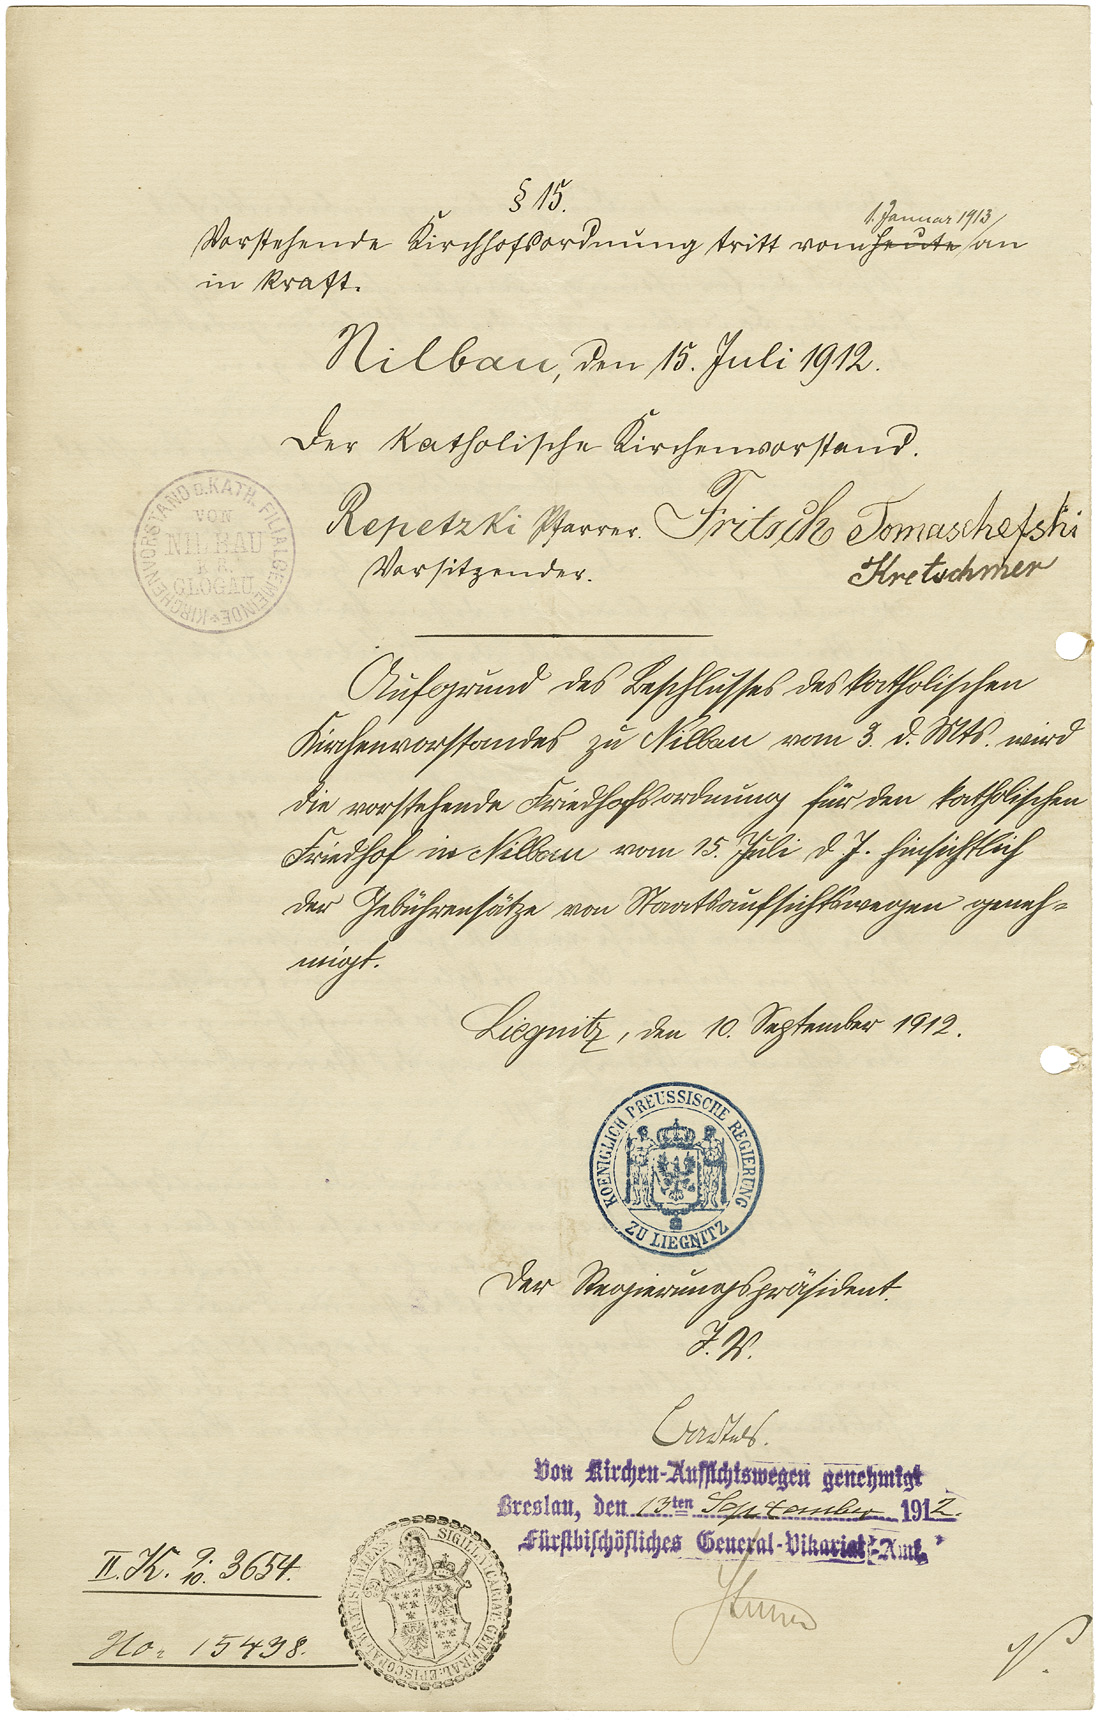 § 15.
1. Januar 1913
Vorstehende Kirchhofsordnung tritt vom heute an
in Kraft.
Nilbau, den 15. Juli 1912.
Der katholische Kirchenvorstand.
Repetzki Pfarrer. Fritsch Tomaschefski
Vorsitzender. Kretschmer
KIRCHENVORSTAND D. KATH. FILIALGEMEINDE
VON
NILBAU
K.A.
GLOGAU
Aufgrund des Beschlusses des katholischen
Kirchenvorstandes zu Nilbau vom 3. d. Mts. wird
die vorstehende Friedhofsordnung für den katholischen
Friedhof in Nilbau vom 15. Juli d. J. hinsichtlich
der Gebührensätze von Staatsaufsichtswegen geneh=
migt.
Liegnitz, den 10. September 1912.
KOENIGLICH PREUSSISCHE REGIERUNG
ZU LIEGNITZ
Der Regierungspräsident.
J. V.
Von Kirchen-Aufsichtswegen genehmigt
Breslau, den 13ten September 1912.
Fürstbischöfliches General-Vikariat-Amt.
II. K. 9/10. 3654.
No. 15438.
SIGILL. VICARIAT. GENERAL. EPISCOPAL. WRATISLAVIENS